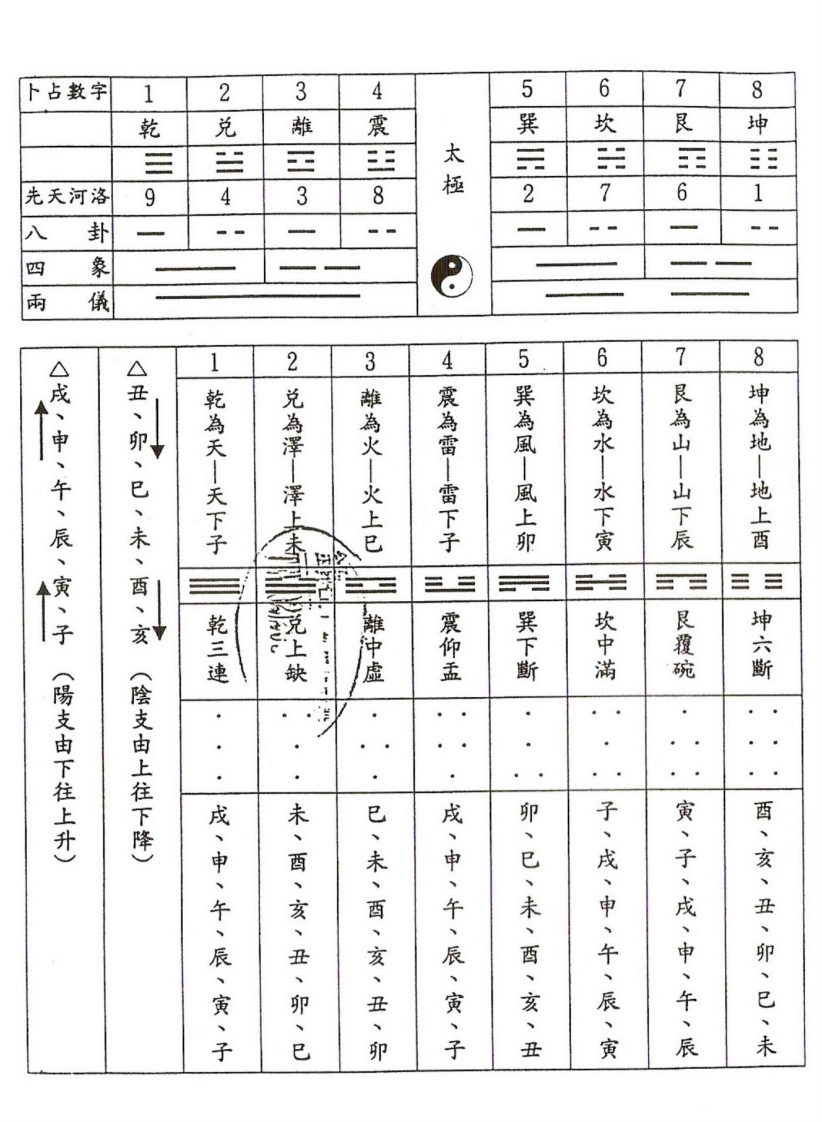 卜占數字 1 2 3 4 太極 5 6 7 8
乾 兌 離 震 巽 坎 艮 坤
先天河洛 9 4 3 8 2 7 6 1
八卦
四象
兩儀
1 2 3 4 5 6 7 8
△戌、申、午、辰、寅、子（陽支由下往上升）
△丑、卯、巳、未、酉、亥（陰支由上往下降）
乾為天—天下子
兌為澤—澤上未
離為火—火上巳
震為雷—雷下子
巽為風—風上卯
坎為水—水下寅
艮為山—山下辰
坤為地—地上酉
乾三連
兌上缺
離中虛
震仰盂
巽下斷
坎中滿
艮覆碗
坤六斷
戌、申、午、辰、寅、子
未、酉、亥、丑、卯、巳
巳、未、酉、亥、丑、卯
戌、申、午、辰、寅、子
卯、巳、未、酉、亥、丑
子、戌、申、午、辰、寅
寅、子、戌、申、午、辰
酉、亥、丑、卯、巳、未